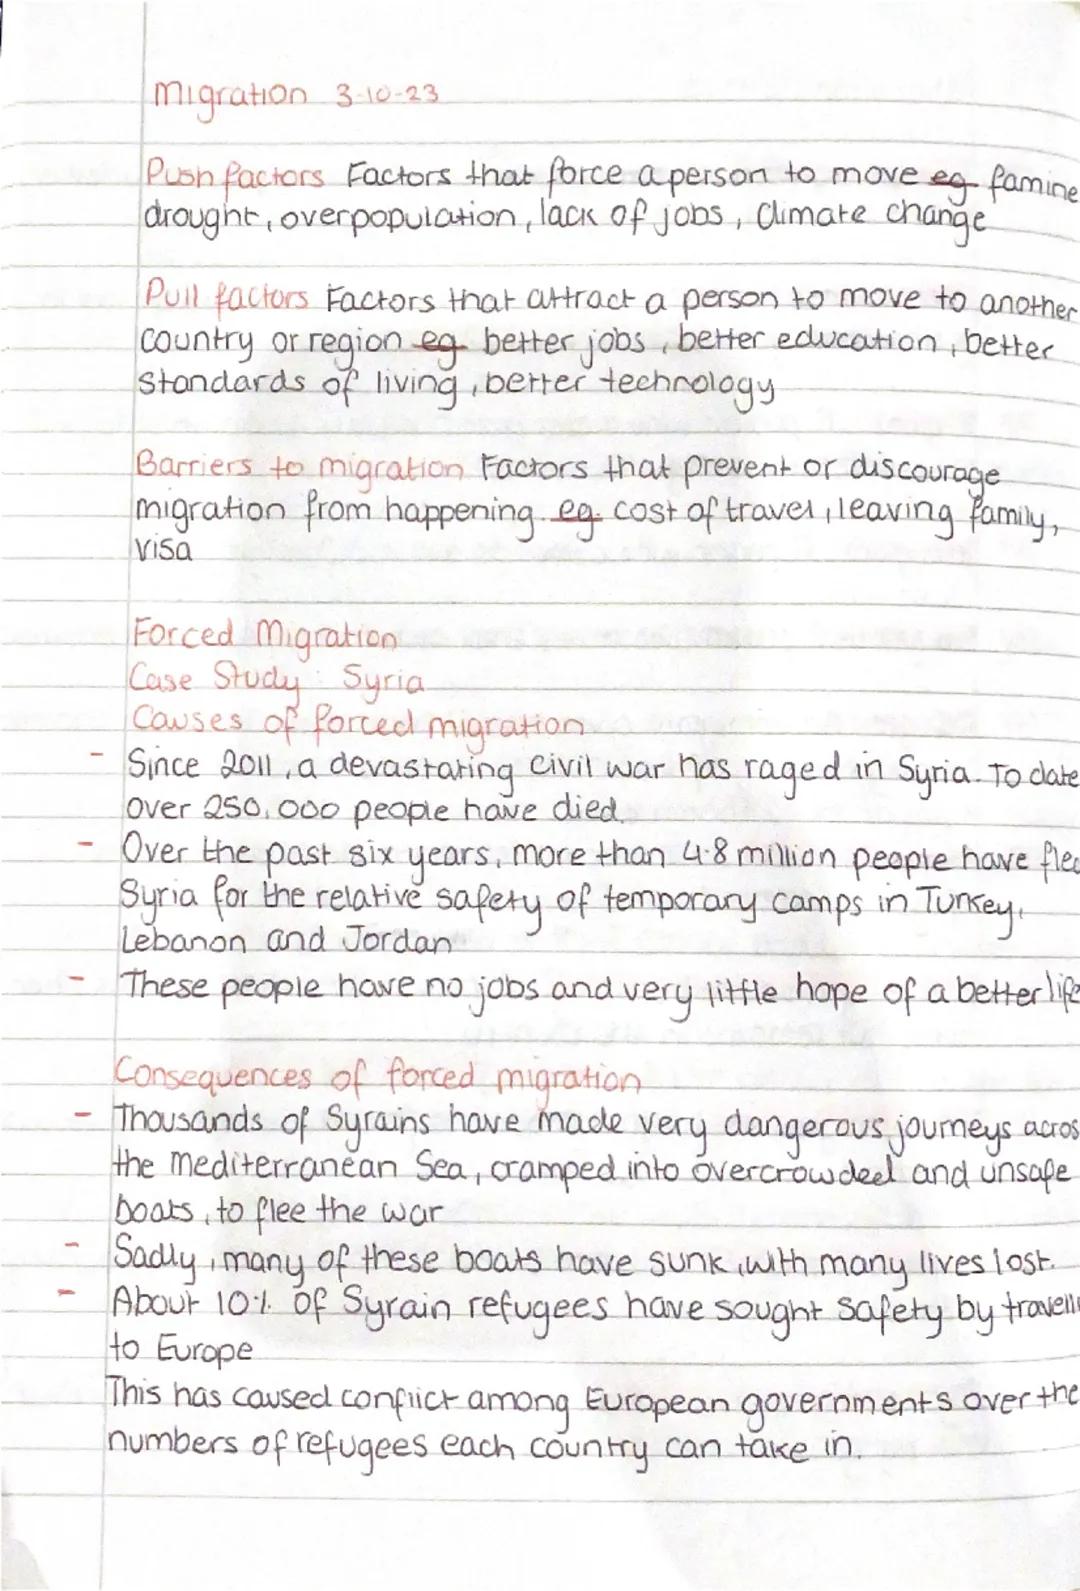 Migration 3-10-23
Push factors Factors that force a person to move eg famine
drought, overpopulation, lack of jobs, Climate change
Pull factors Factors that attract a person to move to another
country or region eg better jobs, better education, better
standards of living, better technology
Barriers to migration Factors that prevent or discourage
migration from happening. eg. cost of travel, leaving family,
visa
Forced Migration
Case Study: Syria
Causes of forced migration
- Since 2011, a devastating civil war has raged in Syria. To date
over 250,000 people have died.
- Over the past six years, more than 4.8 million people have fled
Syria for the relative safety of temporary camps in Turkey,
Lebanon and Jordan
- These people have no jobs and very little hope of a better life
Consequences of forced migration
- Thousands of Syrains have made very dangerous journeys acros
the Mediterranean Sea, cramped into overcrowded and unsafe
boats, to flee the war
- Sadly, many of these boats have sunk, with many lives lost.
- About 10% of Syrain refugees have sought safety by travelli
to Europe
This has caused conflict among European governments over the
numbers of refugees each country can take in.